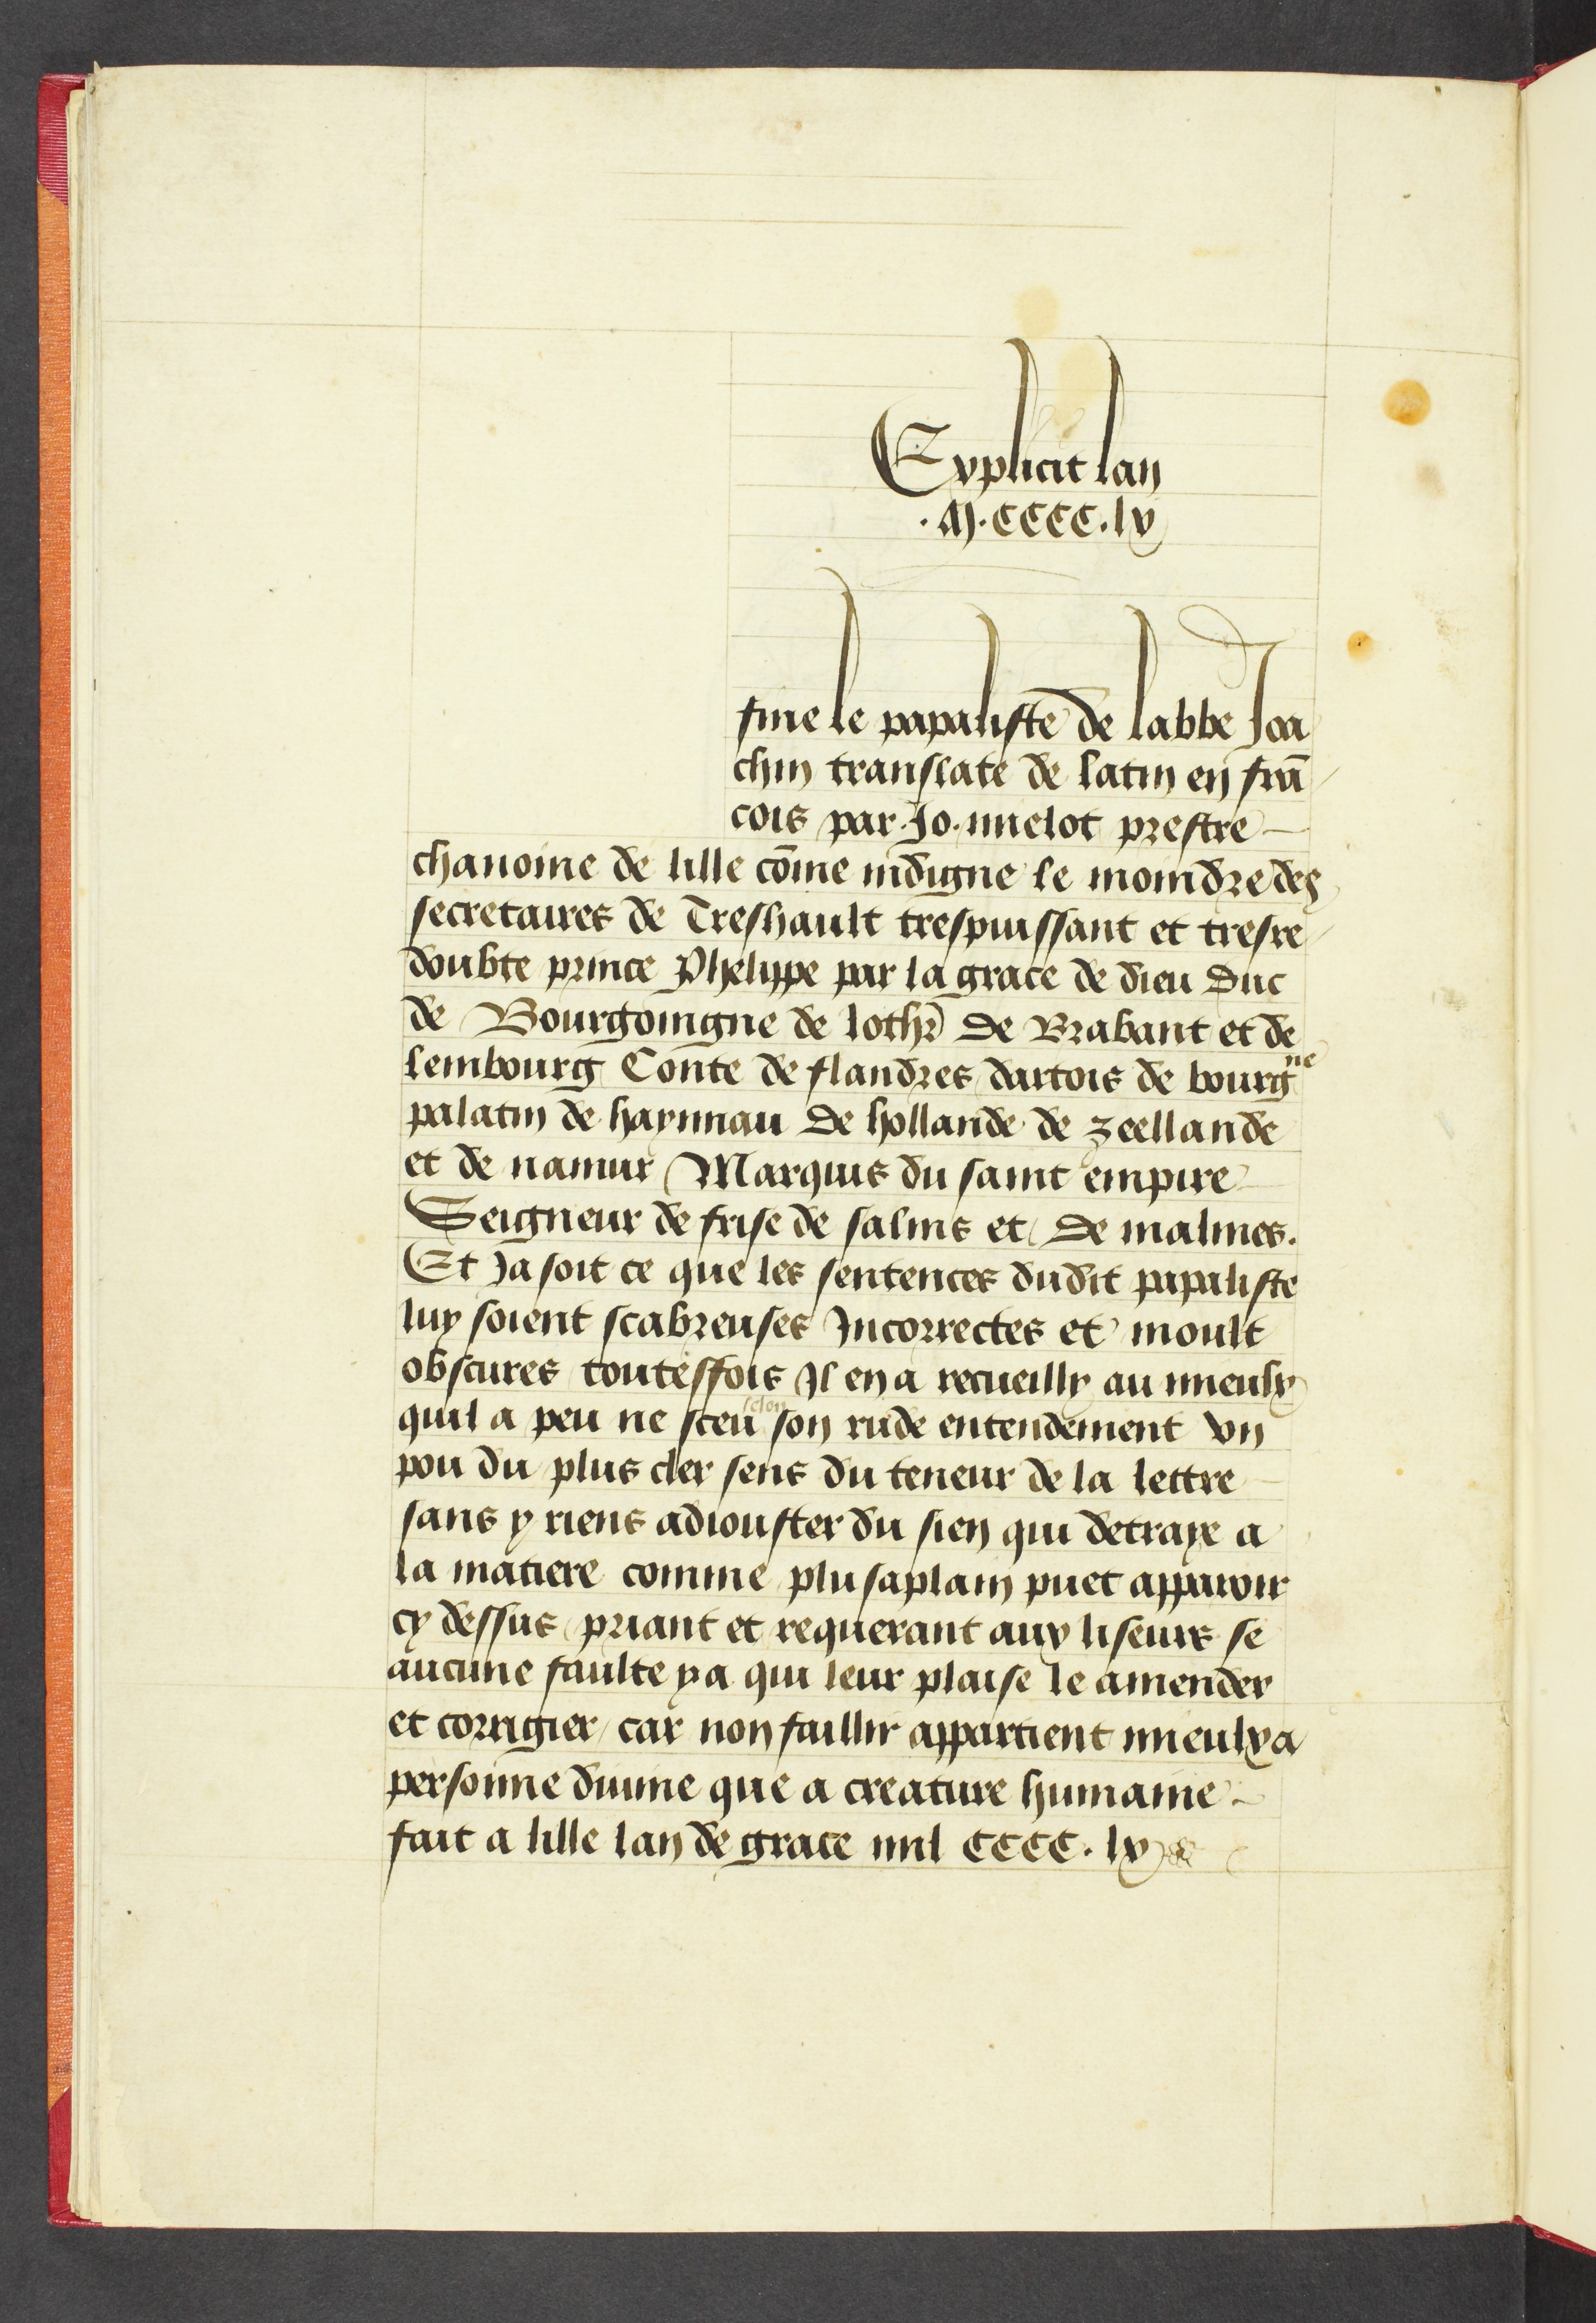 Explicit lan
.M.CCCC.lv
fine le papaliste de labbe Joa
chin translate de latin en frā
cois par Jo. mielot prestre
chanoine de lille cōme indigne le moindre des
secretaires de Treshault trespuissant et tresre
doubte prince Phelippe par la grace de dieu Duc
de Bourgoingne de lothr̄ De Brabant et de
lembourg Conte de flandres dartois de bourgne
palatin de haynnau De hollande de zeellande
et de namur Marquis du saint empire
Seigneur de frise de salins et De malines.
Et Ja soit ce que les sentences dudit papaliste
luy soient scabreuses Incorrectes et moult
obscures toutesfois Il en a recueilly au mieulx
quil a peu ne sceu selon son rude entendement vn
pou du plus cler sens du teneur de la lettre
sans y riens adiouster du sien qui detraye a
la matiere comme plusaplain puet apparoir
cy dessus priant et requerant aux liseurs se
aucune faulte y a qui leur plaise le amender
et corrigier / car non faillir appartient mieulx a
personne diuine que a creature humaine
fait a lille lan de grace mil CCCC. lv